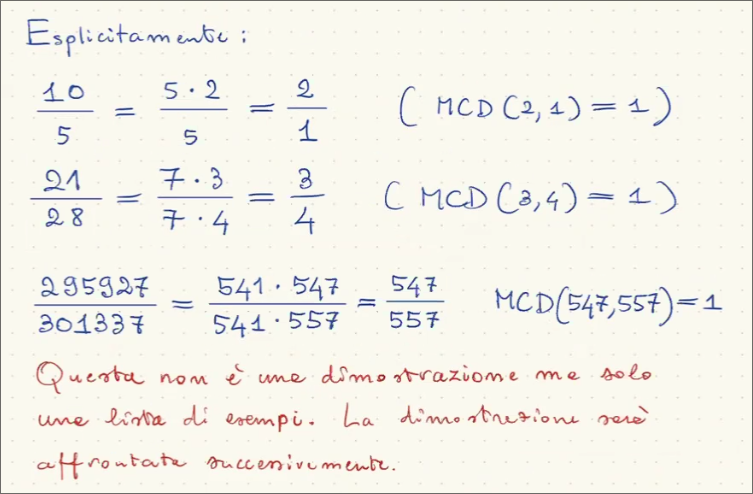 Esplicitamente:
10/5 = 5·2/5 = 2/1 (MCD(2,1)=1)
21/28 = 7·3/7·4 = 3/4 (MCD(3,4)=1)
295927/301337 = 541·547/541·557 = 547/557 MCD(547,557)=1
Questa non è una dimostrazione ma solo
una lista di esempi. La dimostrazione sarà
affrontata successivamente.